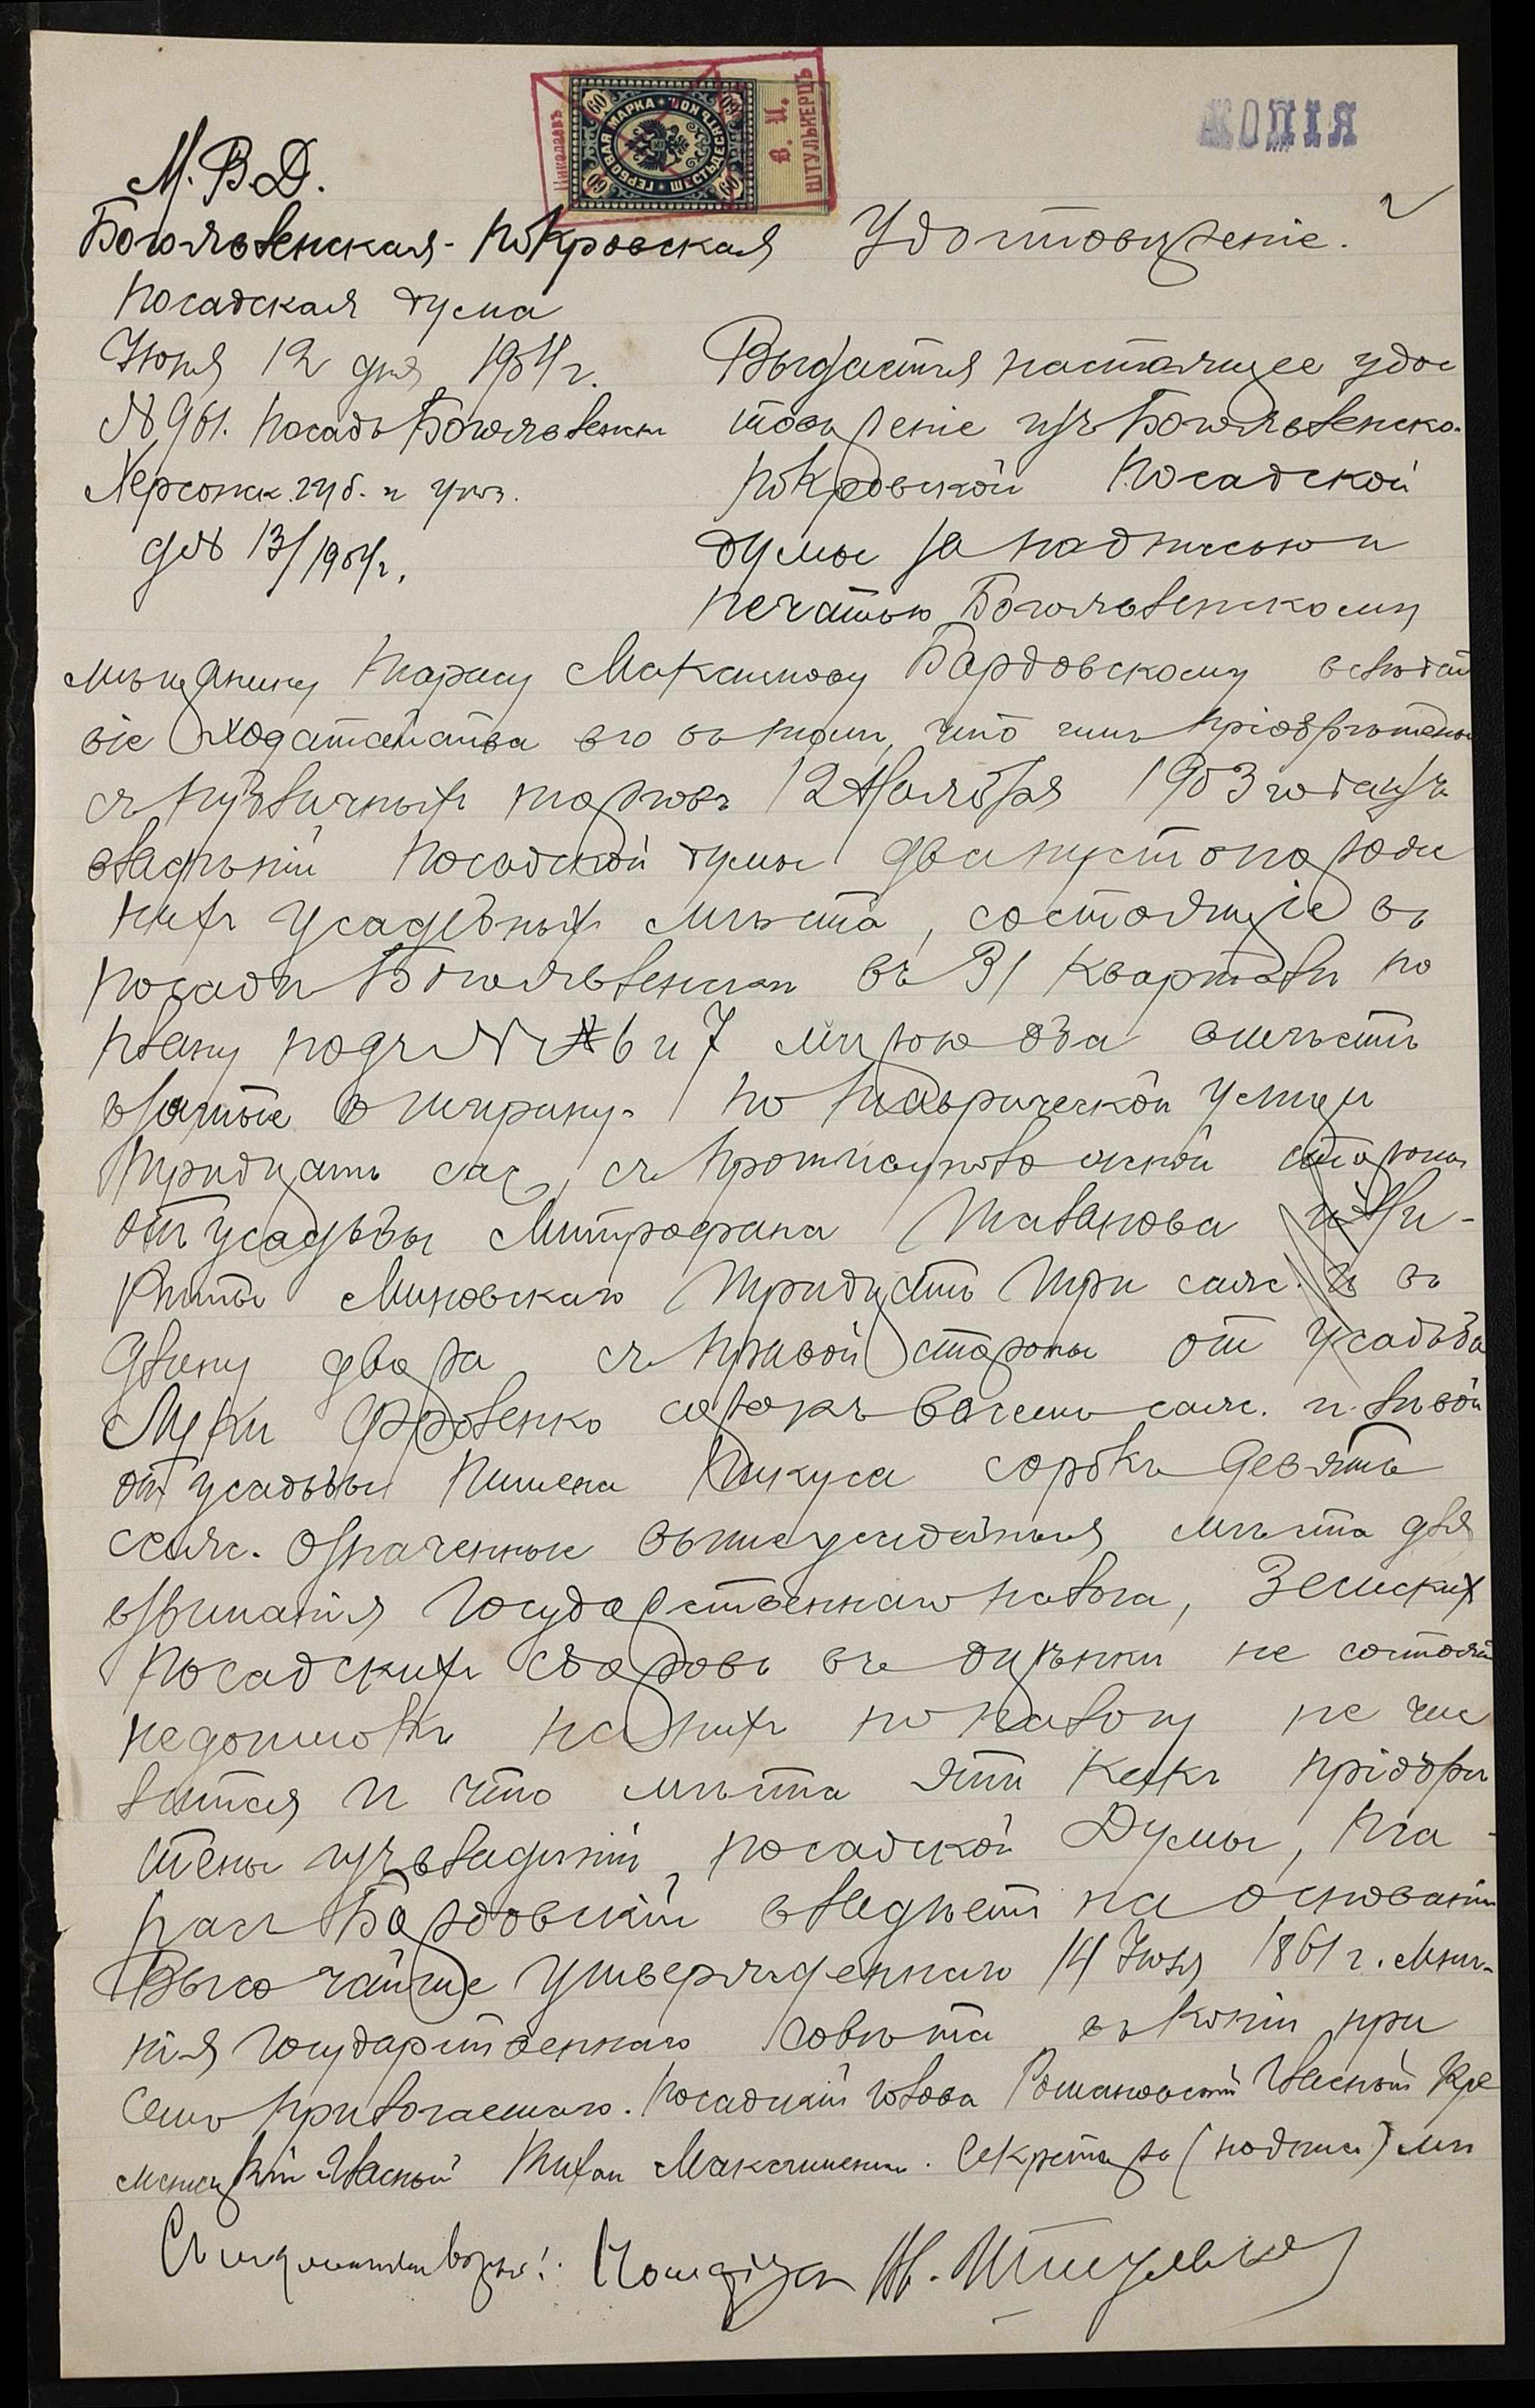 КОПІЯ
Николаевъ
ГЕРБОВАЯ МАРКА ШЕСТЬДЕСЯТЪ КОП.
60 60 60 60
В. И.
ШТУЛЬКЕРЦЪ
М. В. Д.
Богоявленская-Покровская
Посадская дума
Іюня 12 дня 1904 г.
№ 961. Посадъ Богоявленскъ
Херсонск. губ. и уѣз.
д № 13/1904 г.
Удостовѣреніе.
Выдается настоящее удос
товѣреніе изъ Богоявленско-
Покровской Посадской
думы за надписью и
печатью Богоявленскому
мѣщанину Тарасу Максимову Бардовскому вслѣдст
віе ходатайства его въ томъ, что имъ пріобрѣтены
съ публичныхъ торговъ 12 Ноября 1903 года изъ
владѣній Посадской думы два пустопорож
нихъ усадебныхъ мѣста, состоящіе въ
посадѣ Богоявленскѣ въ 31 кварталѣ по
плану подъ № 6 и 7 мѣрою оба вмѣстѣ
взятые в ширину по Таврической улицѣ
тридцать саж, съ противуположной стороны
отъ усадьбы Митрофана Таланова и Ни-
киты Миновскаго тридцать три саж. и въ
длину двора съ правой стороны от усадьбы
сорокъ восемь саж. и лѣвой
от усадьбы Пимена Пикуса сорокъ девять
саж. Означенные вышеусадебныя мѣста для
взиманія Государственнаго налога, Земскихъ
Посадскихъ сборовъ въ оцѣнки не состоятъ
недоимокъ на нихъ по налогу не чис
лится и что мѣста эти какъ пріобрѣ
тены изъ владѣній посадской Думы, Та-
расъ Бардовскій владѣетъ на основаніи
Высочайше утвержденнаго 14 Іюля 1861 г. Мнѣ-
нія Государственнаго Совѣта въ копіи при
семъ прилогаемаго. Посадскій Голова Романовскій Гласный Кре
менецкій Гласный Тихон Максименко. Секретарь (подпись) мп